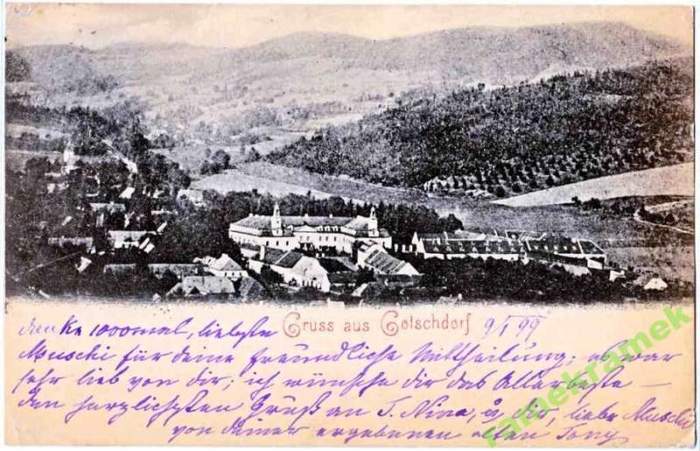 Gruss aus Gotschdorf 9/1 99
danke 1000mal, liebste
Muschi für deine freundliche Mittheilung; es war
sehr lieb von dir; ich wünsche dir das Allerbeste —
den herzlichsten Gruß an T. Nina, u. dir, liebe Muschi
von deiner ergebenen alten Tony
ramekramek